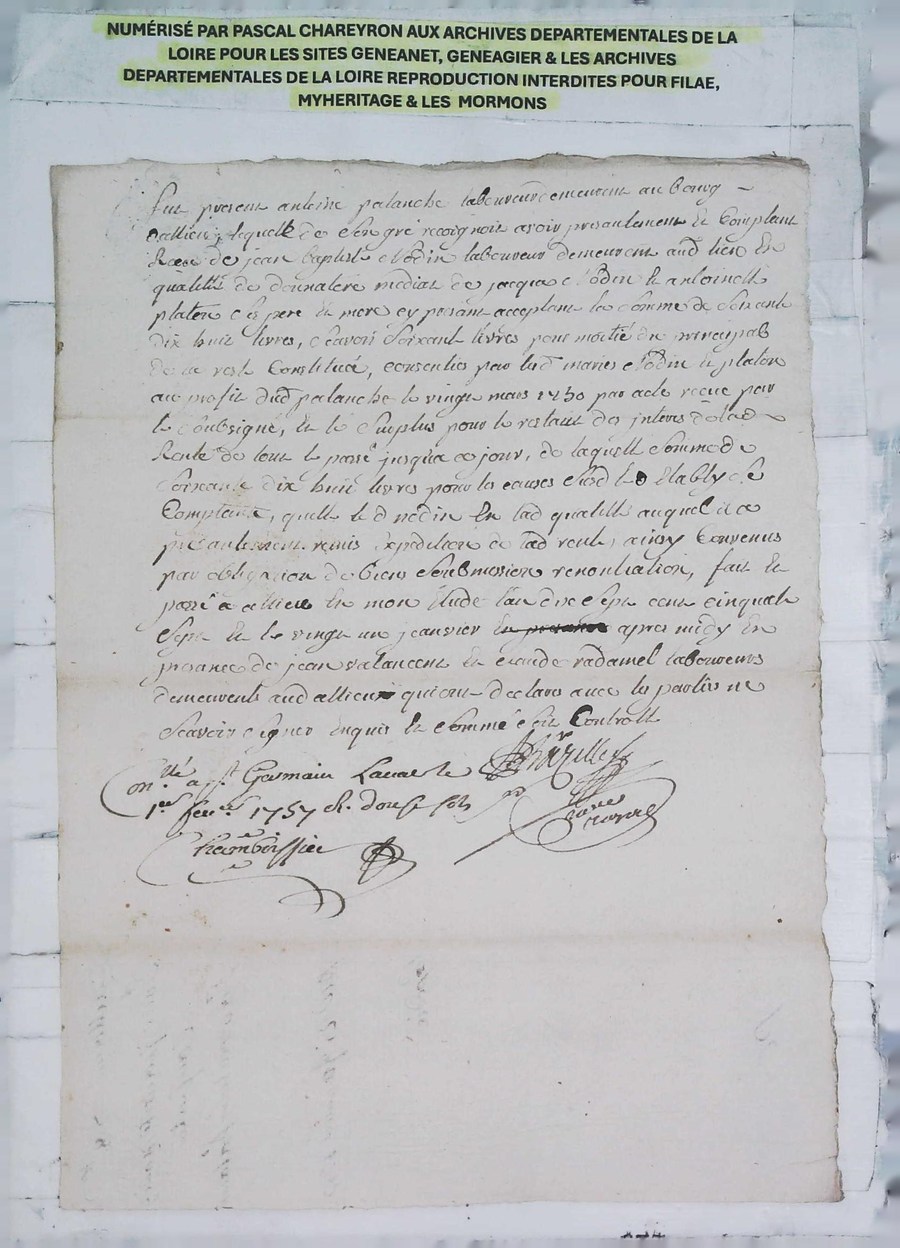 NUMÉRISÉ PAR PASCAL CHAREYRON AUX ARCHIVES DEPARTEMENTALES DE LA
LOIRE POUR LES SITES GENEANET, GENEAGIER & LES ARCHIVES
DEPARTEMENTALES DE LA LOIRE REPRODUCTION INTERDITES POUR FILAE,
MYHERITAGE & LES MORMONS
fut present antoine palanche laboureur demeurant au bourg
dallieu, lequel de son gre recognoit avoir presentement et comptant
Receu de jean baptiste laboureur demeurant aud lieu en
qualité de donnatere mediat de jacque et antoinette
platon ses pere et mere cy present acceptant la somme de soixante
dix huit livres, scavoir soixante livres pour moitié du principal
de la rente Constituée, consenties par lesd mariés et platon
au profit dud palanche le vingt mars 1750 par acte recue par
le soubsigné, et le surplus pour le restant des interes de lad
Rente de tout le passé jusqua ce jour, de laquelle somme de
soixante dix huit livres pour les causes susd led
Comptante, quitte le d en lad qualitté auquel il a
presentement remis expedition de lad rente, ainsy Convenus
par obligation de biens soubmission renontiation, fait et
passé a allieu en mon etude l'an dixsept cent cinquate
sept et le vingt un jeanvier apres midy en
presance de jean valancent et claude radamel laboureurs
demeurents aud allieux quiont declare avec les parties ne
scavoir signer enquis et sommé soit Controllé
Con.lle a St Germain Laval le
1er fev.er 1757 R. douse sols